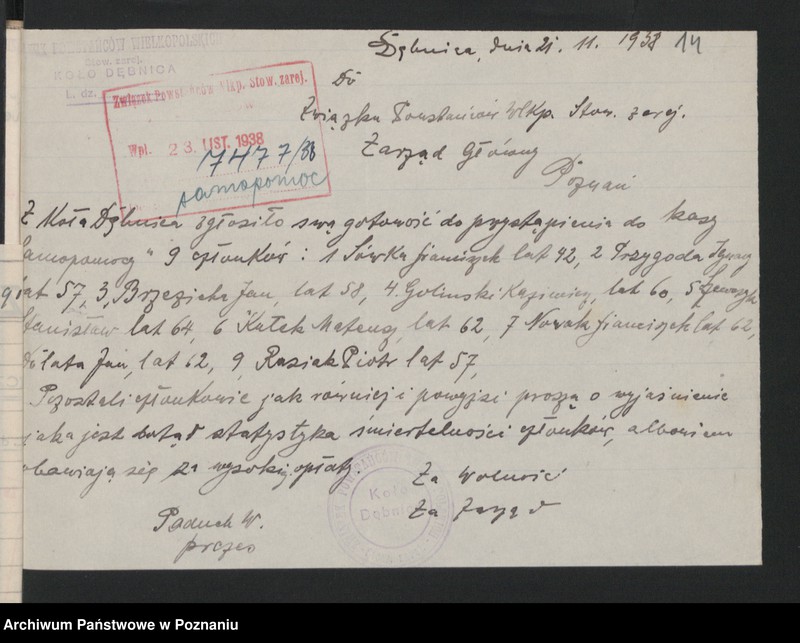 Dębnica, dnia 21. 11. 1938 14
ZWIĄZEK POWSTAŃCÓW WIELKOPOLSKICH
Stow. zarej.
KOŁO DĘBNICA
L. dz.
Do
Związek Powstańców Wlkp. Stow. zarej.
Wpl. 23. LIST. 1938
7477/38
samopomoc
Związku Powstańców Wlkp. Stow. zarej.
Zarząd Główny
Poznań
Z Koła Dębnica zgłosiło swą gotowość do przystąpienia do kasy
samopomocy" 9 członków: 1 Sówka Franciszek lat 42, 2 Przygoda Ignacy
lat 57, 3, Brzezicha Jan, lat 58, 4. Goliński Kazimierz, lat 60, 5
Stanisław lat 64, 6 Kałek Mateusz, lat 62, 7 Nowak Franciszek lat 62,
Dolata Jan, lat 62, 9 Rasiak Piotr lat 57,
Pozostali członkowie jak również i powyżsi proszą o wyjaśnienie
jaka jest dotąd statystyka śmiertelności członków, albowiem
obawiają się za wysokiej opłaty.
Za Wolność
Za Zarząd
Koło
Dębnica
Paduch W.
prezes
Archiwum Państwowe w Poznaniu